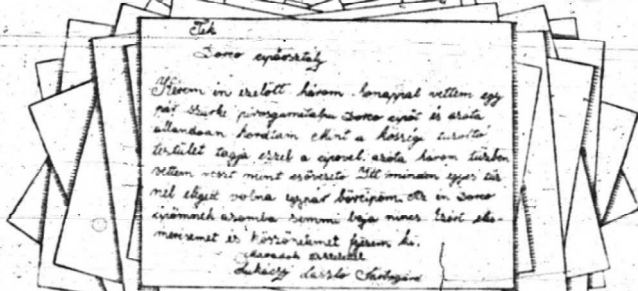 Tek
Dorco cipőosztály
Kérem én ezelőtt három hónappal vettem egy
pár szürke Dorco cipőt és azóta
állandóan hordtam Mint a községi tűzoltó
testület tagja ezzel a cipővel azóta három tűzben
vettem részt mint Itt minden egyes tűz
nél elégett volna egypár bőrcipőm. Az én Dorco
cipőmnek azomba semmi baja nincs Ezért elis
merésemet és köszönetemet fejezem ki.
tisztelettel
Lukáczy László